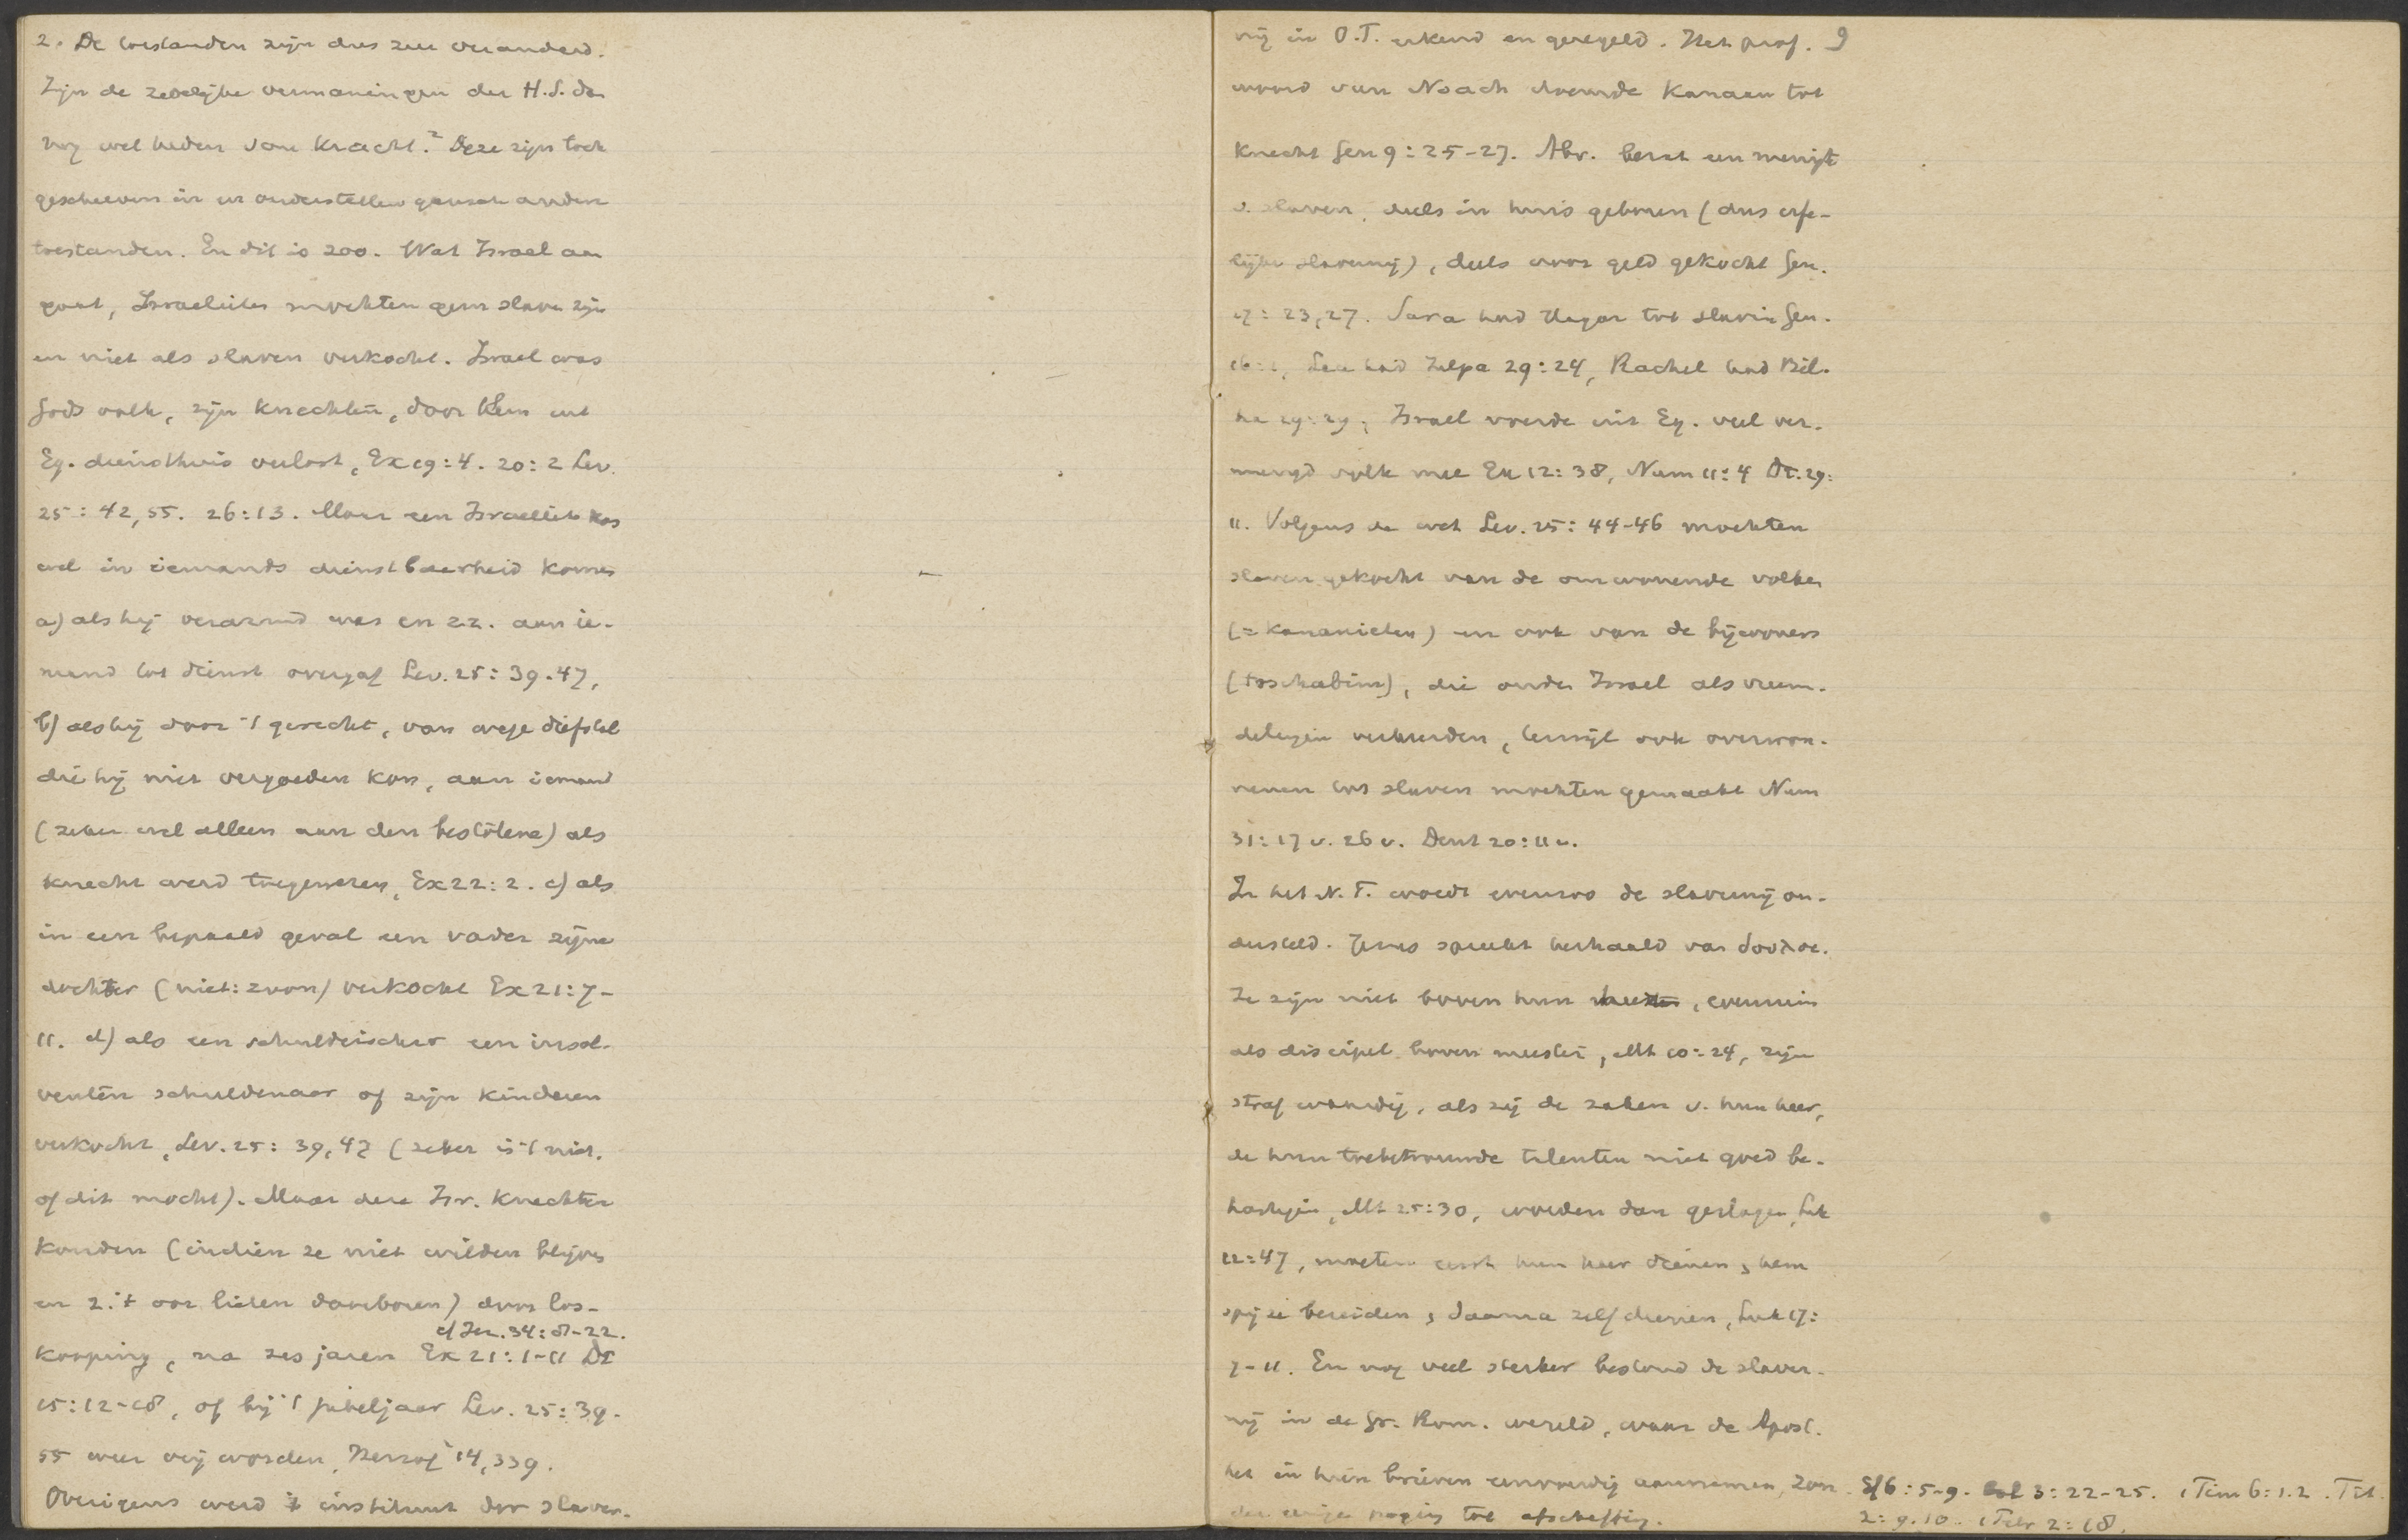 2. De toestanden zijn dus zeer veranderd.
Zijn de zedelijke vermaningen der H.S. dan
nog wel heden van kracht? Deze zijn toch
geschreven in en onderstellen gansch andere
toestanden. En dit is zoo. Wat Israel aan
gaat, Israelieten mochten geen slaven zijn
en niet als slaven verkocht. Israel was
Gods volk, zijn knechten, door Hem uit
Eg. diensthuis verlost, Ex 19:4. 20:2 Lev.
25:42,55. 26:13. Maar een Israeliet kon
wel in iemands dienstbaarheid komen
a) als hij verarmd was en z.z. aan ie-
mand tot dienst overgaf Lev. 25:39.47,
b) als hij door 't gerecht, van wege diefstal
die hij niet vergoeden kon, aan iemand
(zeker wel alleen aan den bestolene) als
knecht werd toegewezen, Ex 22:2. c) als
in een bepaald geval een vader zijne
dochter (niet: zoon) verkocht Ex 21:7-
11. d) als een schuldeischer een insol-
venten schuldenaar of zijn kinderen
verkocht, Lev. 25:39,47 (zeker is 't niet,
of dit mocht). Maar deze Isr. knechten
konden (indien ze niet wilden blijven
en z. 't oor lieten doorboren) door los-
cf Jer. 34:8-22.
kooping, na zes jaren Ex 21:1-11 Dt
15:12-18, of bij 't jubeljaar Lev. 25:39-
55 weer vrij worden, Herzog 14,339.
Overigens werd 't instituut der slaver-
nij in O.T. erkend en geregeld. Het prof. 9
woord van Noach doemde Kanaan tot
knecht Gen 9:25-27. Abr. bezat een menigte
v. slaven, deels in huis geboren (dus erfe-
lijke slavernij), deels voor geld gekocht Gen.
17:23,27. Sara had Hagar tot slavin Gen.
16:1, Lea had Zilpa 29:24, Rachel had Bil-
ha 29:29, Israel voerde uit Eg. veel ver-
mengd volk mee Ex 12:38, Num 11:4 Dt. 29:
11. Volgens de wet Lev. 25:44-46 mochten
slaven gekocht van de omwonende volken
(= Kananieten) en ook van de bijwoners
(toschabim), die onder Israel als vreem-
delingen verkeerden, terwijl ook overwon-
nenen tot slaven mochten gemaakt Num
31:17 v. 26 v. Deut 20:11 v.
In het N.T. wordt evenzoo de slavernij on-
dersteld. Jezus spreekt herhaald van δουλοι.
Ze zijn niet boven hun heer, evenmin
als discipel boven meester, Mt 10:24, zijn
straf waardig, als zij de zaken v. hun heer,
de hun toebetrouwde talenten niet goed be-
hartigen, Mt 25:30, worden dan geslagen, Luk
12:47, moeten eerst hun heer dienen, hem
spijze bereiden, daarna zelf dienen, Luk 17:
7-11. En nog veel sterker bestond de slaver-
nij in de Gr. Rom. wereld, waar de Apost.
het in hun brieven eenvoudig aannemen, zon- Ef 6:5-9. Col 3:22-25. 1 Tim 6:1.2. Tit.
der eenige poging tot afschaffing. 2:9.10. 1 Petr 2:18.